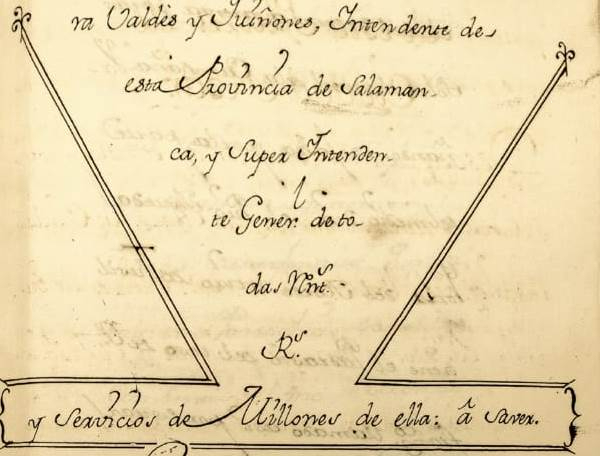 ra Valdès y Quiñones, Intendente de-
esta Provincia de Salaman-
ca, y Super Intenden-
te Gener.l de to-
das Rnt.s
R.s
y Servicios de Millones de ella: â saver.